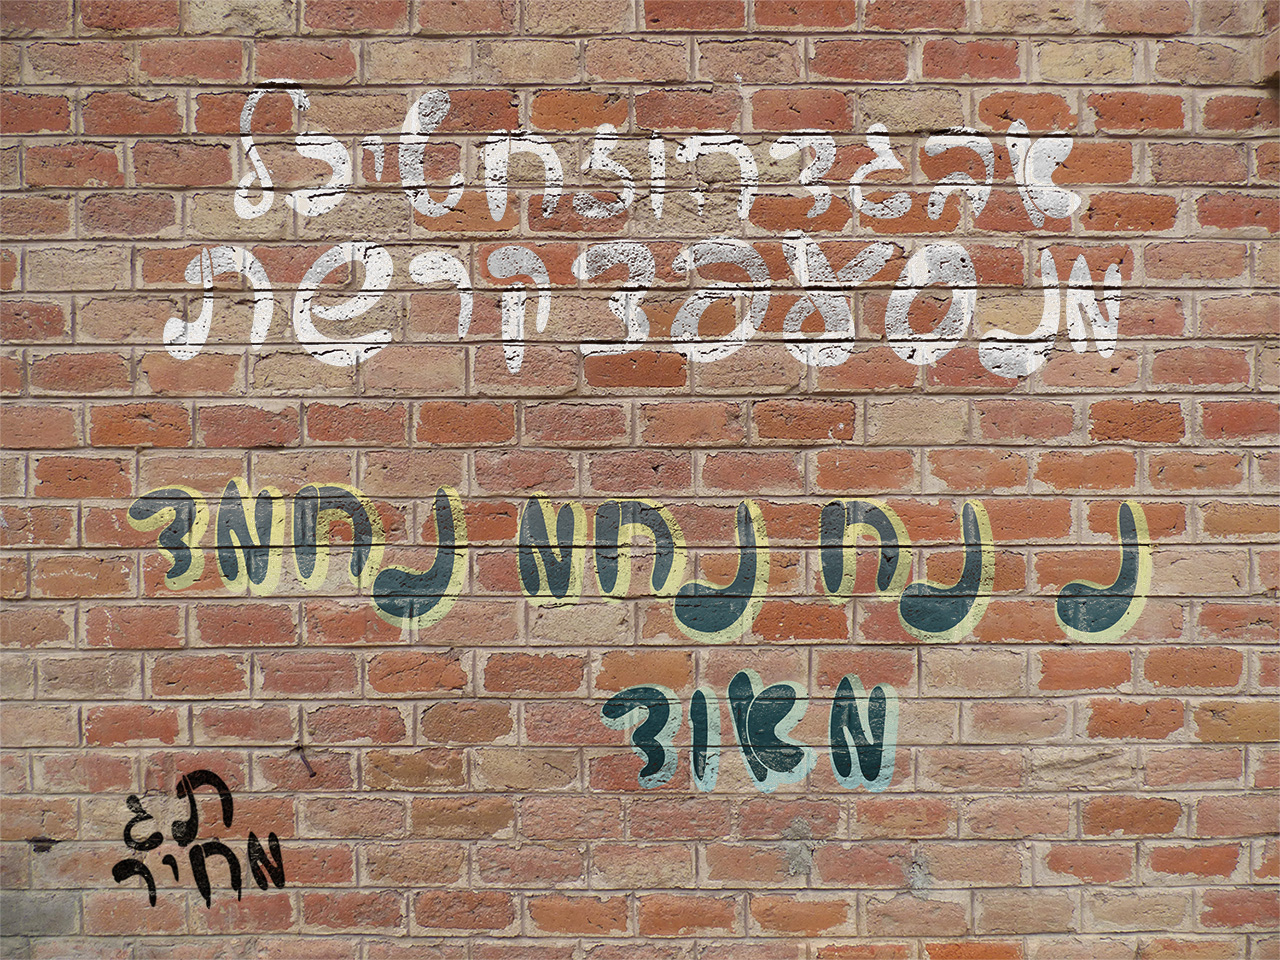 אבגדהוזחטיכל
מנסעפצקרשת
נ נח נחמ נחמד
מאוד
תג
מחיר